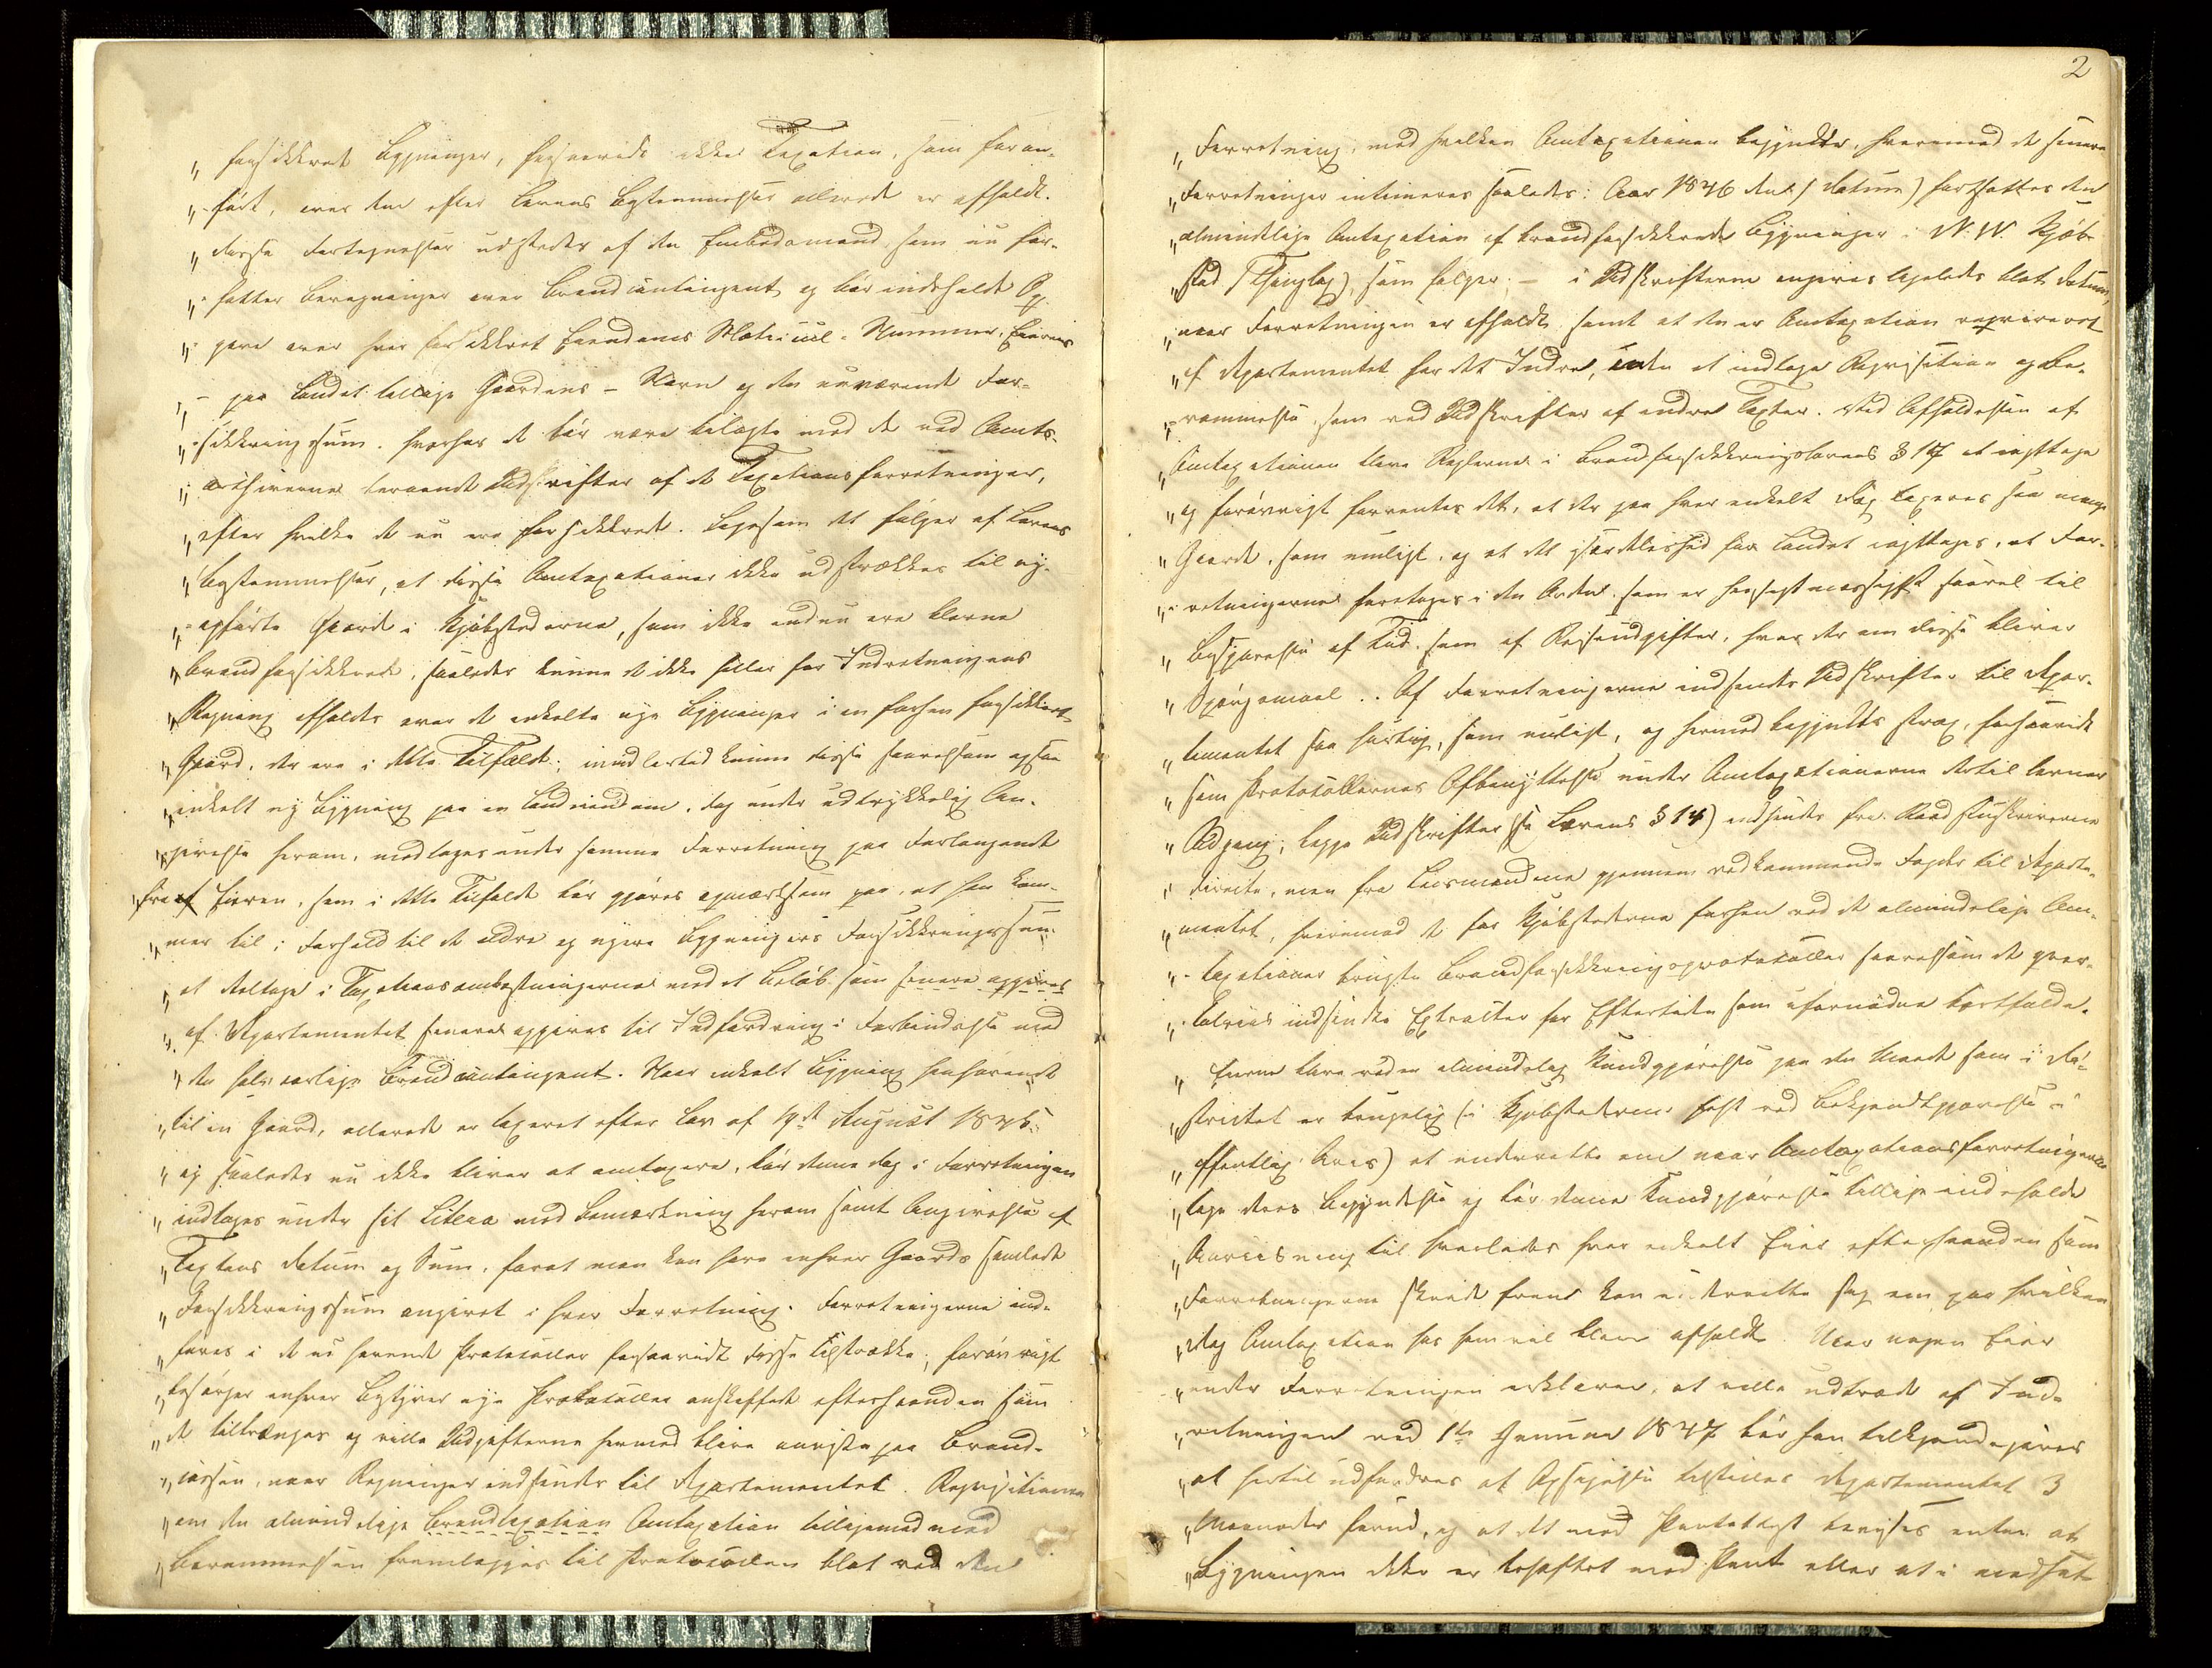 forsikkret Bygninger, forsaavidt ikke Taxation, som foran-
ført, over dem efter Lovens Bestemmelser allerede er afholdt.
disse Fortegnelser udstedes af den Embedsmand som nu for-
fatter Beregninger over Brandcontingent og bør indeholde Op-
gave over hver forsikkret Eiendoms Matricul-Nummer, Eierens
- paa Landet tillige Gaardens - Navn og den nuværende For-
sikkringssum. hvorhos de bør være bilagte med de ved Amts-
archiverne beroende Udskrifter af de Taxationsforretninger,
efter hvilke de nu ere forsikkrede. Ligesom det følger af Lovens
Bestemmelser, at disse Omtaxationer ikke udstrækkes til ny-
opførte Gaarde i Kjøbstæderne, som ikke endnu ere blevne
brandforsikkrede, saaledes kunne de ikke heller for Indretningens
Regning afholdes over de enkelte nye Bygninger i en forhen forsikkret
Gaard, der ere i dette Tilfælde; imidlertid kunne disse saavelsom ogsaa
enkelt ny Bygning paa en Landeiendom, dog under udtrykkelig An-
givelse herom, medtages under samme Forretning paa Forlangende
fra Eieren, som i dette Tilfælde bør gjøres opmærksom paa, at han kom-
mer til i Forhold til de ældre og nyere Bygningers Forsikkringssum
at deltage i Taxationsomkostningerne med et Beløb som senere opgives
af Departementet senere opgives til Indfordring i Forbindelse med
den halvaarlige Brandcontingent. Naar enkelt Bygning henhørende
til en Gaard, allerede er taxeret efter Lov af 19de August 1845
og saaledes nu ikke bliver at omtaxere, bør denne dog i Forretningen
indtages under sit Litera med Bemærkning herom samt Angivelse af
Taxtens Datum og Sum, forat man kan have enhver Gaards samlede
Forsikkringssum angivet i hver Forretning. Forretningerne ind-
føres i de nu havende Protocoller forsaavidt disse tilstrække; forøvrigt
besørger enhver Bestyrer nye Protocoller anskaffede efterhaanden som
de tiltrænges og ville Udgifterne hermed blive anviste paa Brand-
cassen, naar Regninger indsendes til Departementet. Reqvisitionen
om den almindelige Brandtaxation Omtaxation tilligemed med
Berammelsen fremlægges til Protocollen blot ved den
2
Forretning, med hvilken Omtaxationen begyndes, hvorimod de senere
Forretninger intimeres saaledes: Aar 1846 den (Datum) fortsattes den
almindelige Omtaxation af brandforsikkrede Bygninger i N. N. Kjøb-
stad (Thinglag), som følger: - i Udskrifterne angives ligeledes blot Datum,
naar Forretningen er afholdt samt at den er Omtaxation reqvireret
af Departementet for det Indre, uden at indtage Reqvisition og Be-
rammelse, som ved Udskrifter af andre Taxter. Ved Afholdelsen af
Omtaxationen blive Reglerne i Brandforsikkringslovens § 17 at iagttage
og forøvrigt forventes det, at der paa hver enkelt Dag taxeres saa mange
Gaarde, som muligt, og at det især deleshed for Landet iagttages, at For-
retningerne foretages i den Orden som er hensigtsmæssigst saavel til
Besparelse af Tid som af Reiseudgifter, hvor der om disse bliver
Spørgsmaal. Af Forretningerne indsendes Udskrifter til Depar-
tementet saa hurtig, som muligt, og hermed begyndes strax, forsaavidt
som Protocollernes Afbenyttelse under Omtaxationerne dertil levner
Adgang; begge Udskrifter (se Lovens § 14) indsendes fra Raadstueskriverne
directe, men fra Lensmændene gjennem vedkommende Foged til Departe-
mentet, hvorimod de for Kjøbstæderne forhen ved de almindelige Om-
taxationer brugte Brandforsikkringsprotocoller saavelsom de qvar-
taliter indsendte Extracter for Eftertiden som ufornødne bortfalde.
Eierne blive ved en almindelig Kundgjørelse paa den Maade som i Di-
strictet er brugelig (i Kjøbstæderne helst ved Bekjendtgjørelse i
offentlig Avis) at underrette om naar Omtaxationsforretningerne
tage deres Begyndelse og bør denne Kundgjørelse tillige indeholde
Anviisning til hvorledes hver enkelt Eier efterhaanden som
Forretningerne skride frem kan underrette sig om paa hvilken
Dag Omtaxation hos ham vil blive afholdt. Naar nogen Eier
under Forretningen erklærer, at ville udtræde af Ind-
retningen ved 1ste Januar 1847 bør han tilkjendegives
at hertil udfordres at Opsigelse tilstilles Departementet 3
Maaneder forud, og at det med Pantattest bevises enten at
Bygningen ikke er behæftet med Pant eller at i modsat